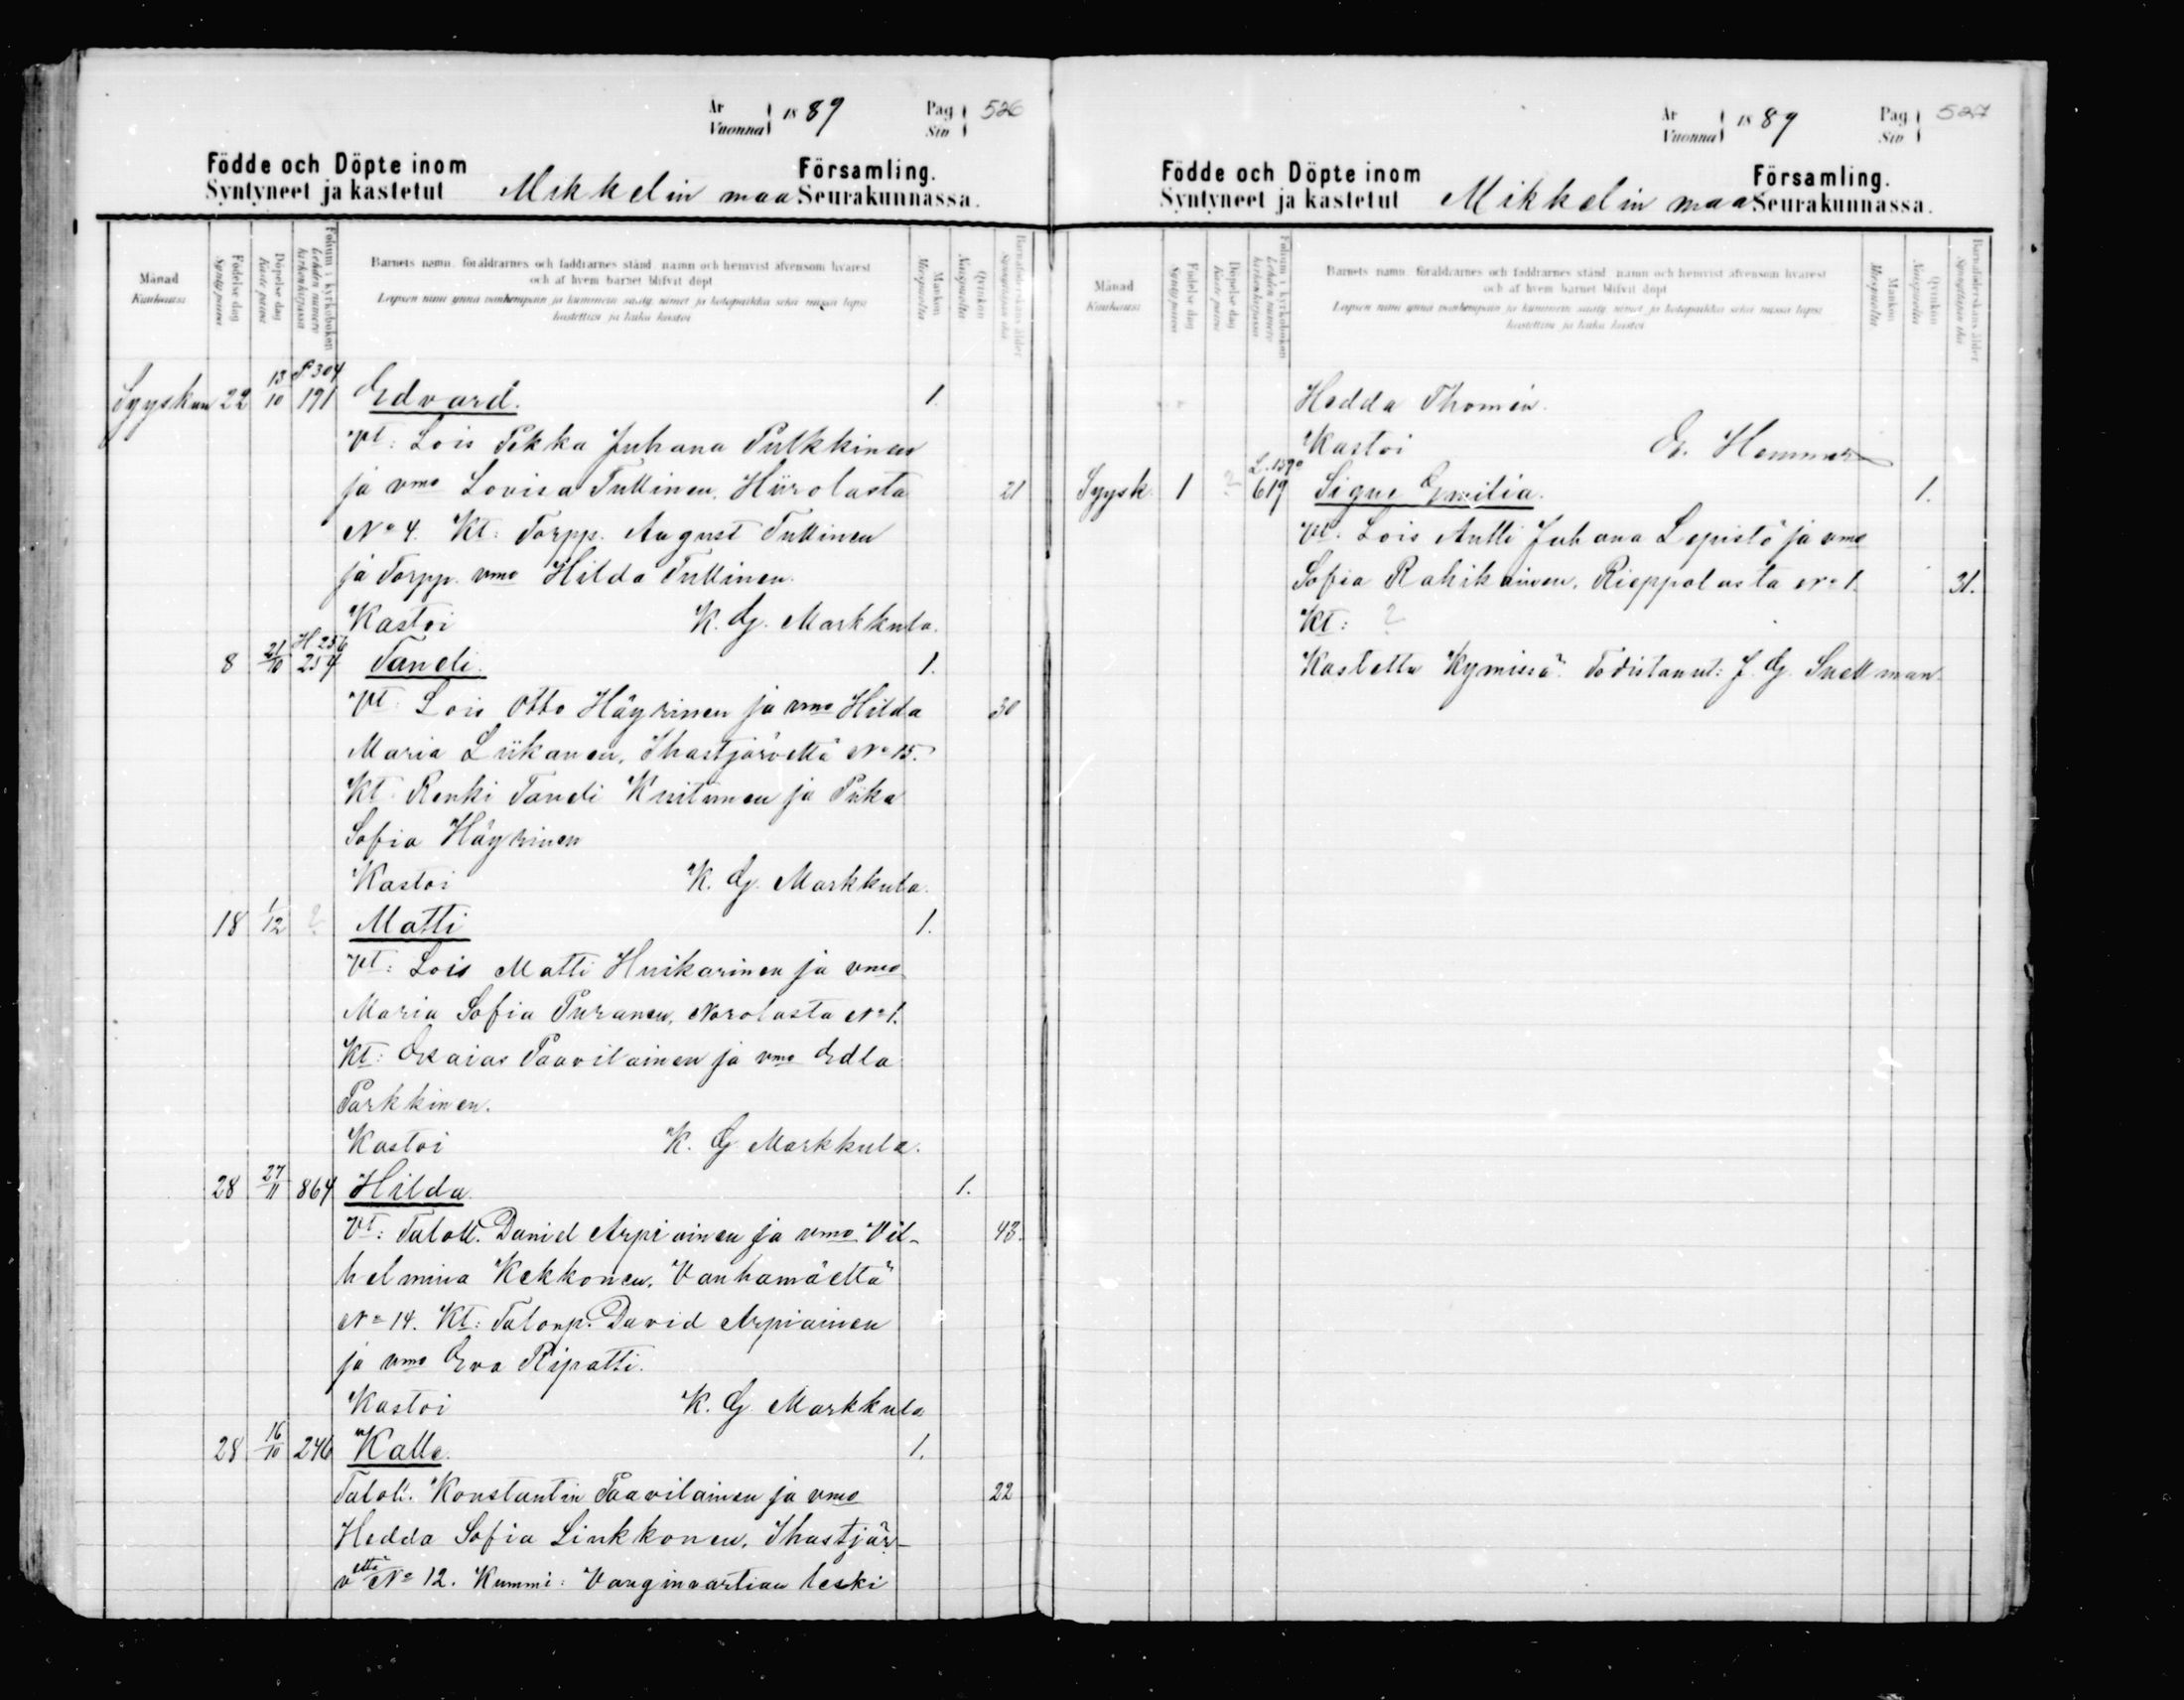 År
Vuonna 1889
Pag
Siv 526
Födde och Döpte inom Församling.
Syntyneet ja kastetut Mikkelin maa Seurakunnassa.
Månad
Kuukausi
Födelse dag
Synty päivä
Döpelse dag
Kaste päivä
Folium i kyrkoboken
Lehden numero
kirkonkirjassa
Barnets namn, föräldrarnes och faddrarnes stånd, namn och hemvist äfvensom hvarest
och af hvem barnet blifvit döpt
Lapsen nimi ynnä vanhempain ja kummein sääty, nimet ja kotopaikka sekä missä lapsi
kastettiin ja kuka kastoi
Mankön
Miespuolta
Qvinkön
Naispuolta
Barnaföderskans ålder
Synnyttäjän ikä
13 P 304
Syyskuu 22 10 191 Edvard. 1.
Vt: Lois Pekka Juhana Pulkkinen
ja vmo Lovisa Tullinen, Hiirolasta 21
No 4. Kt: Torpp. August Tullinen
ja Torpp. vmo Hilda Tullinen.
Kastoi K. G. Markkula.
H 256
8 21/10 254 Taneli. 1.
Vt: Lois Otto Häyrinen ja vmo Hilda 30
Maria Liikanen, Ihastjärveltä No 15.
Kt: Renki Taneli Kuitunen ja Piika
Sofia Häyrinen
Kastoi K. G. Markkula.
18 1/12 ? Matti 1.
Vt: Lois Matti Huikarinen ja vmo
Maria Sofia Puranen, Norolasta No 1.
Kt: Esaias Paavilainen ja vmo Edla
Parkkinen.
Kastoi K. G. Markkula.
28 27/11 864 Hilda. 1.
Vt: Taloll. Daniel Arpiainen ja vmo Vil- 43.
helmina Kekkonen, Vanhamäeltä
No 14. Kt: Talonp. David Arpiainen
ja vmo Eva Ripatti.
Kastoi K. G. Markkula
28 16/10 246 Kalle. 1.
Taloll. Konstantin Paavilainen ja vmo 22
Hedda Sofia Linkkonen, Ihastjär-
veltä No 12. Kummi: Vanginvartian leski
År
Vuonna 1889
Pag
Siv 527
Födde och Döpte inom Församling.
Syntyneet ja kastetut Mikkelin maa Seurakunnassa.
Månad
Kuukausi
Födelse dag
Synty päivä
Döpelse dag
Kaste päivä
Folium i kyrkoboken
Lehden numero
kirkonkirjassa
Barnets namn, föräldrarnes och faddrarnes stånd, namn och hemvist äfvensom hvarest
och af hvem barnet blifvit döpt
Lapsen nimi ynnä vanhempain ja kummein sääty, nimet ja kotopaikka sekä missä lapsi
kastettiin ja kuka kastoi
Mankön
Miespuolta
Qvinkön
Naispuolta
Barnaföderskans ålder
Synnyttäjän ikä
Hedda Thomén.
Kastoi E. Hemmer
Syysk. 1 ? 619 Signe Emilia. 1.
Vt: Lois Antti Juhana Lepistö ja vmo
Sofia Rahikainen, Rieppolasta No 1. 31.
Kt: ?
Kastettu Kymissä. Todistanut: J. G. Snellman.